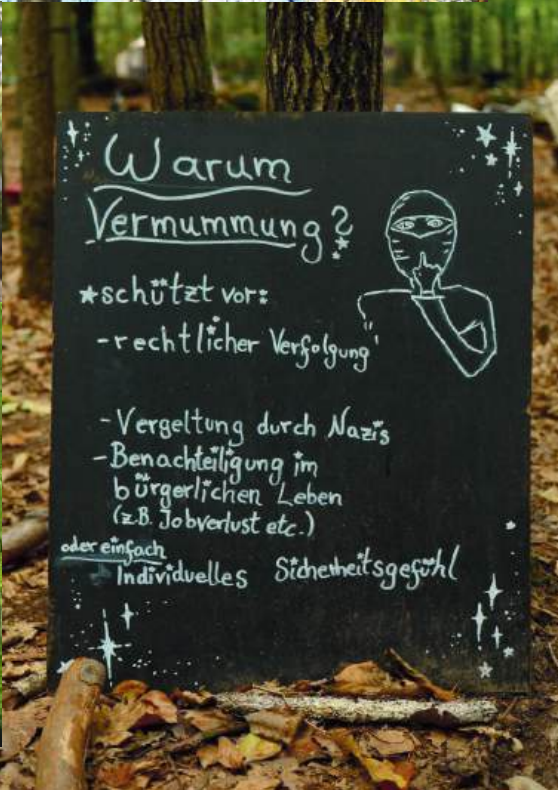 Warum
Vermummung?
*schützt vor:
-rechtlicher Verfolgung
-Vergeltung durch Nazis
-Benachteiligung im
bürgerlichen Leben
(z.B. Jobverlust etc.)
oder einfach
Individuelles Sicherheitsgefühl